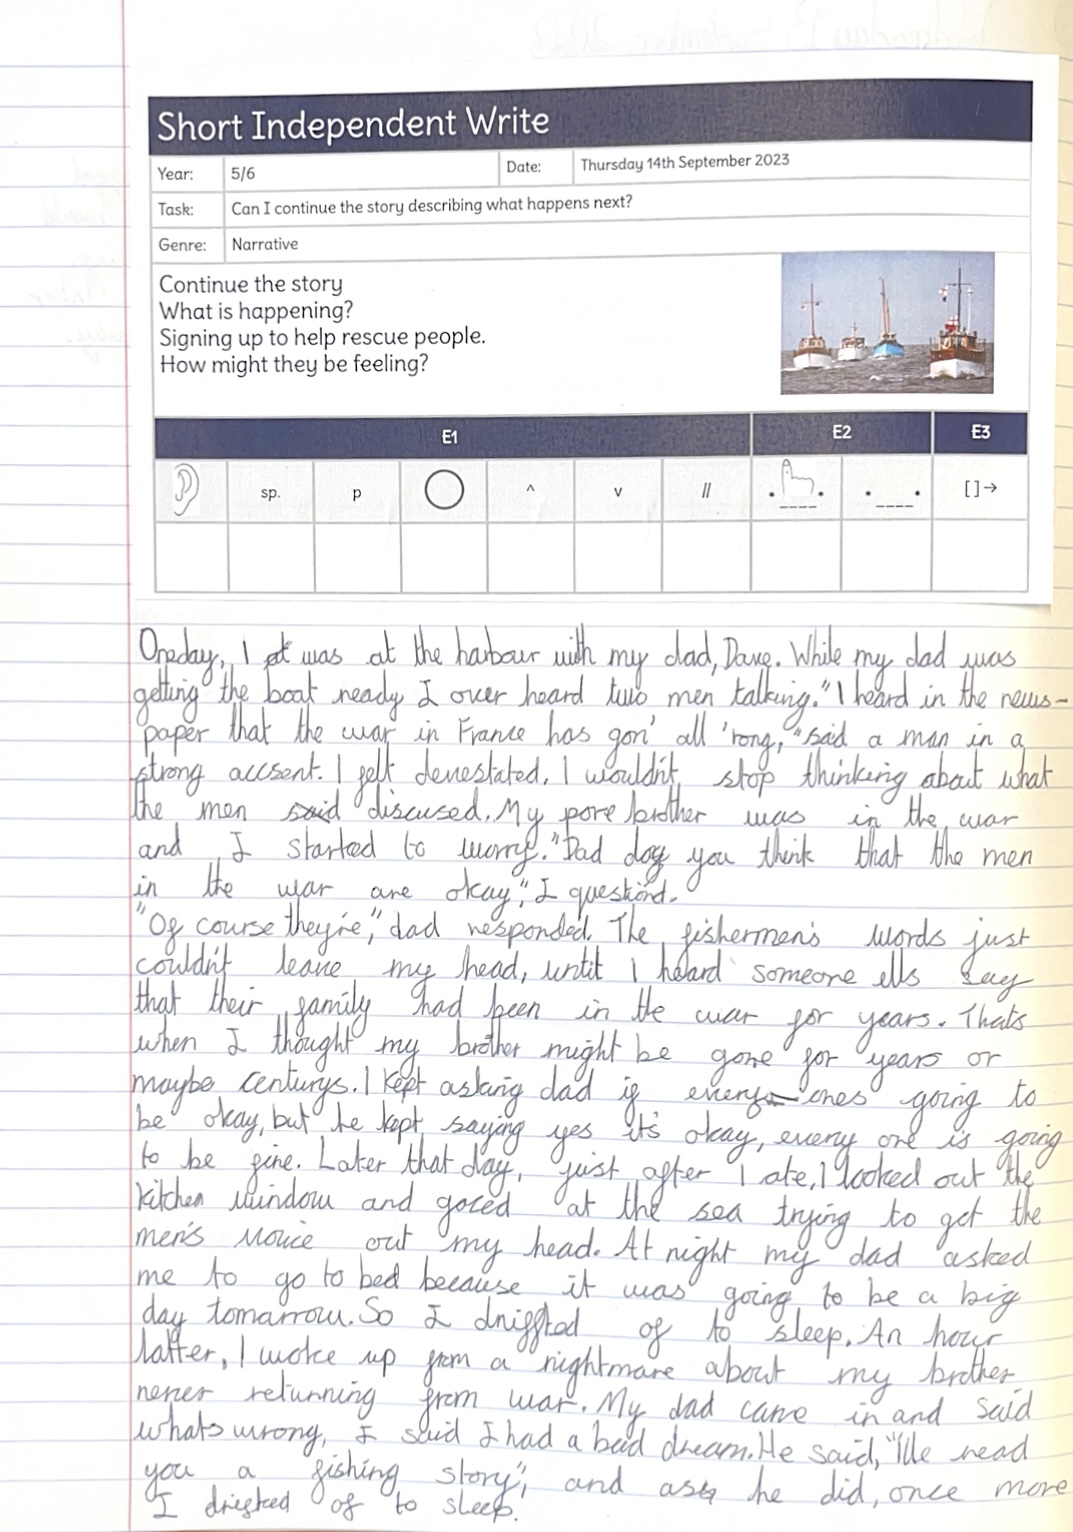 Short Independent Write
Year: 5/6 Date: Thursday 14th September 2023
Task: Can I continue the story describing what happens next?
Genre: Narrative
Continue the story
What is happening?
Signing up to help rescue people.
How might they be feeling?
E1 E2 E3
sp. p ^ v // [ ]→
Oneday, I was at the harbour with my dad, Dave. While my dad was
getting the boat ready I over heard two men talking. "I heard in the news-
paper that the war in France has gon' all 'rong," said a man in a
strong accsent. I felt devestated. I wouldn't stop thinking about what
the men said discused. My pore brother was in the war
and I started to worry. "Dad do you think that the men
in the war are okay", I questiond.
"Of course they're," dad responded. The fishermen's words just
couldn't leave my head, until I heard someone ells say
that their family had been in the war for years. Thats
when I thought my brother might be gone for years or
maybe centurys. I kept asking dad if every ones going to
be okay, but he kept saying yes it's okay, every one is going
to be fine. Later that day, just after I ate, I looked out the
kitchen window and gozed at the sea trying to get the
men's voice out my head. At night my dad asked
me to go to bed because it was going to be a big
day tomarrow. So I driffted of to sleep. An hour
latter, I woke up from a nightmare about my brother
never returning from war. My dad came in and said
whats wrong, I said I had a bad dream. He said, "Ille read
you a fishing story", and as he did, once more
I drifted of to sleep.